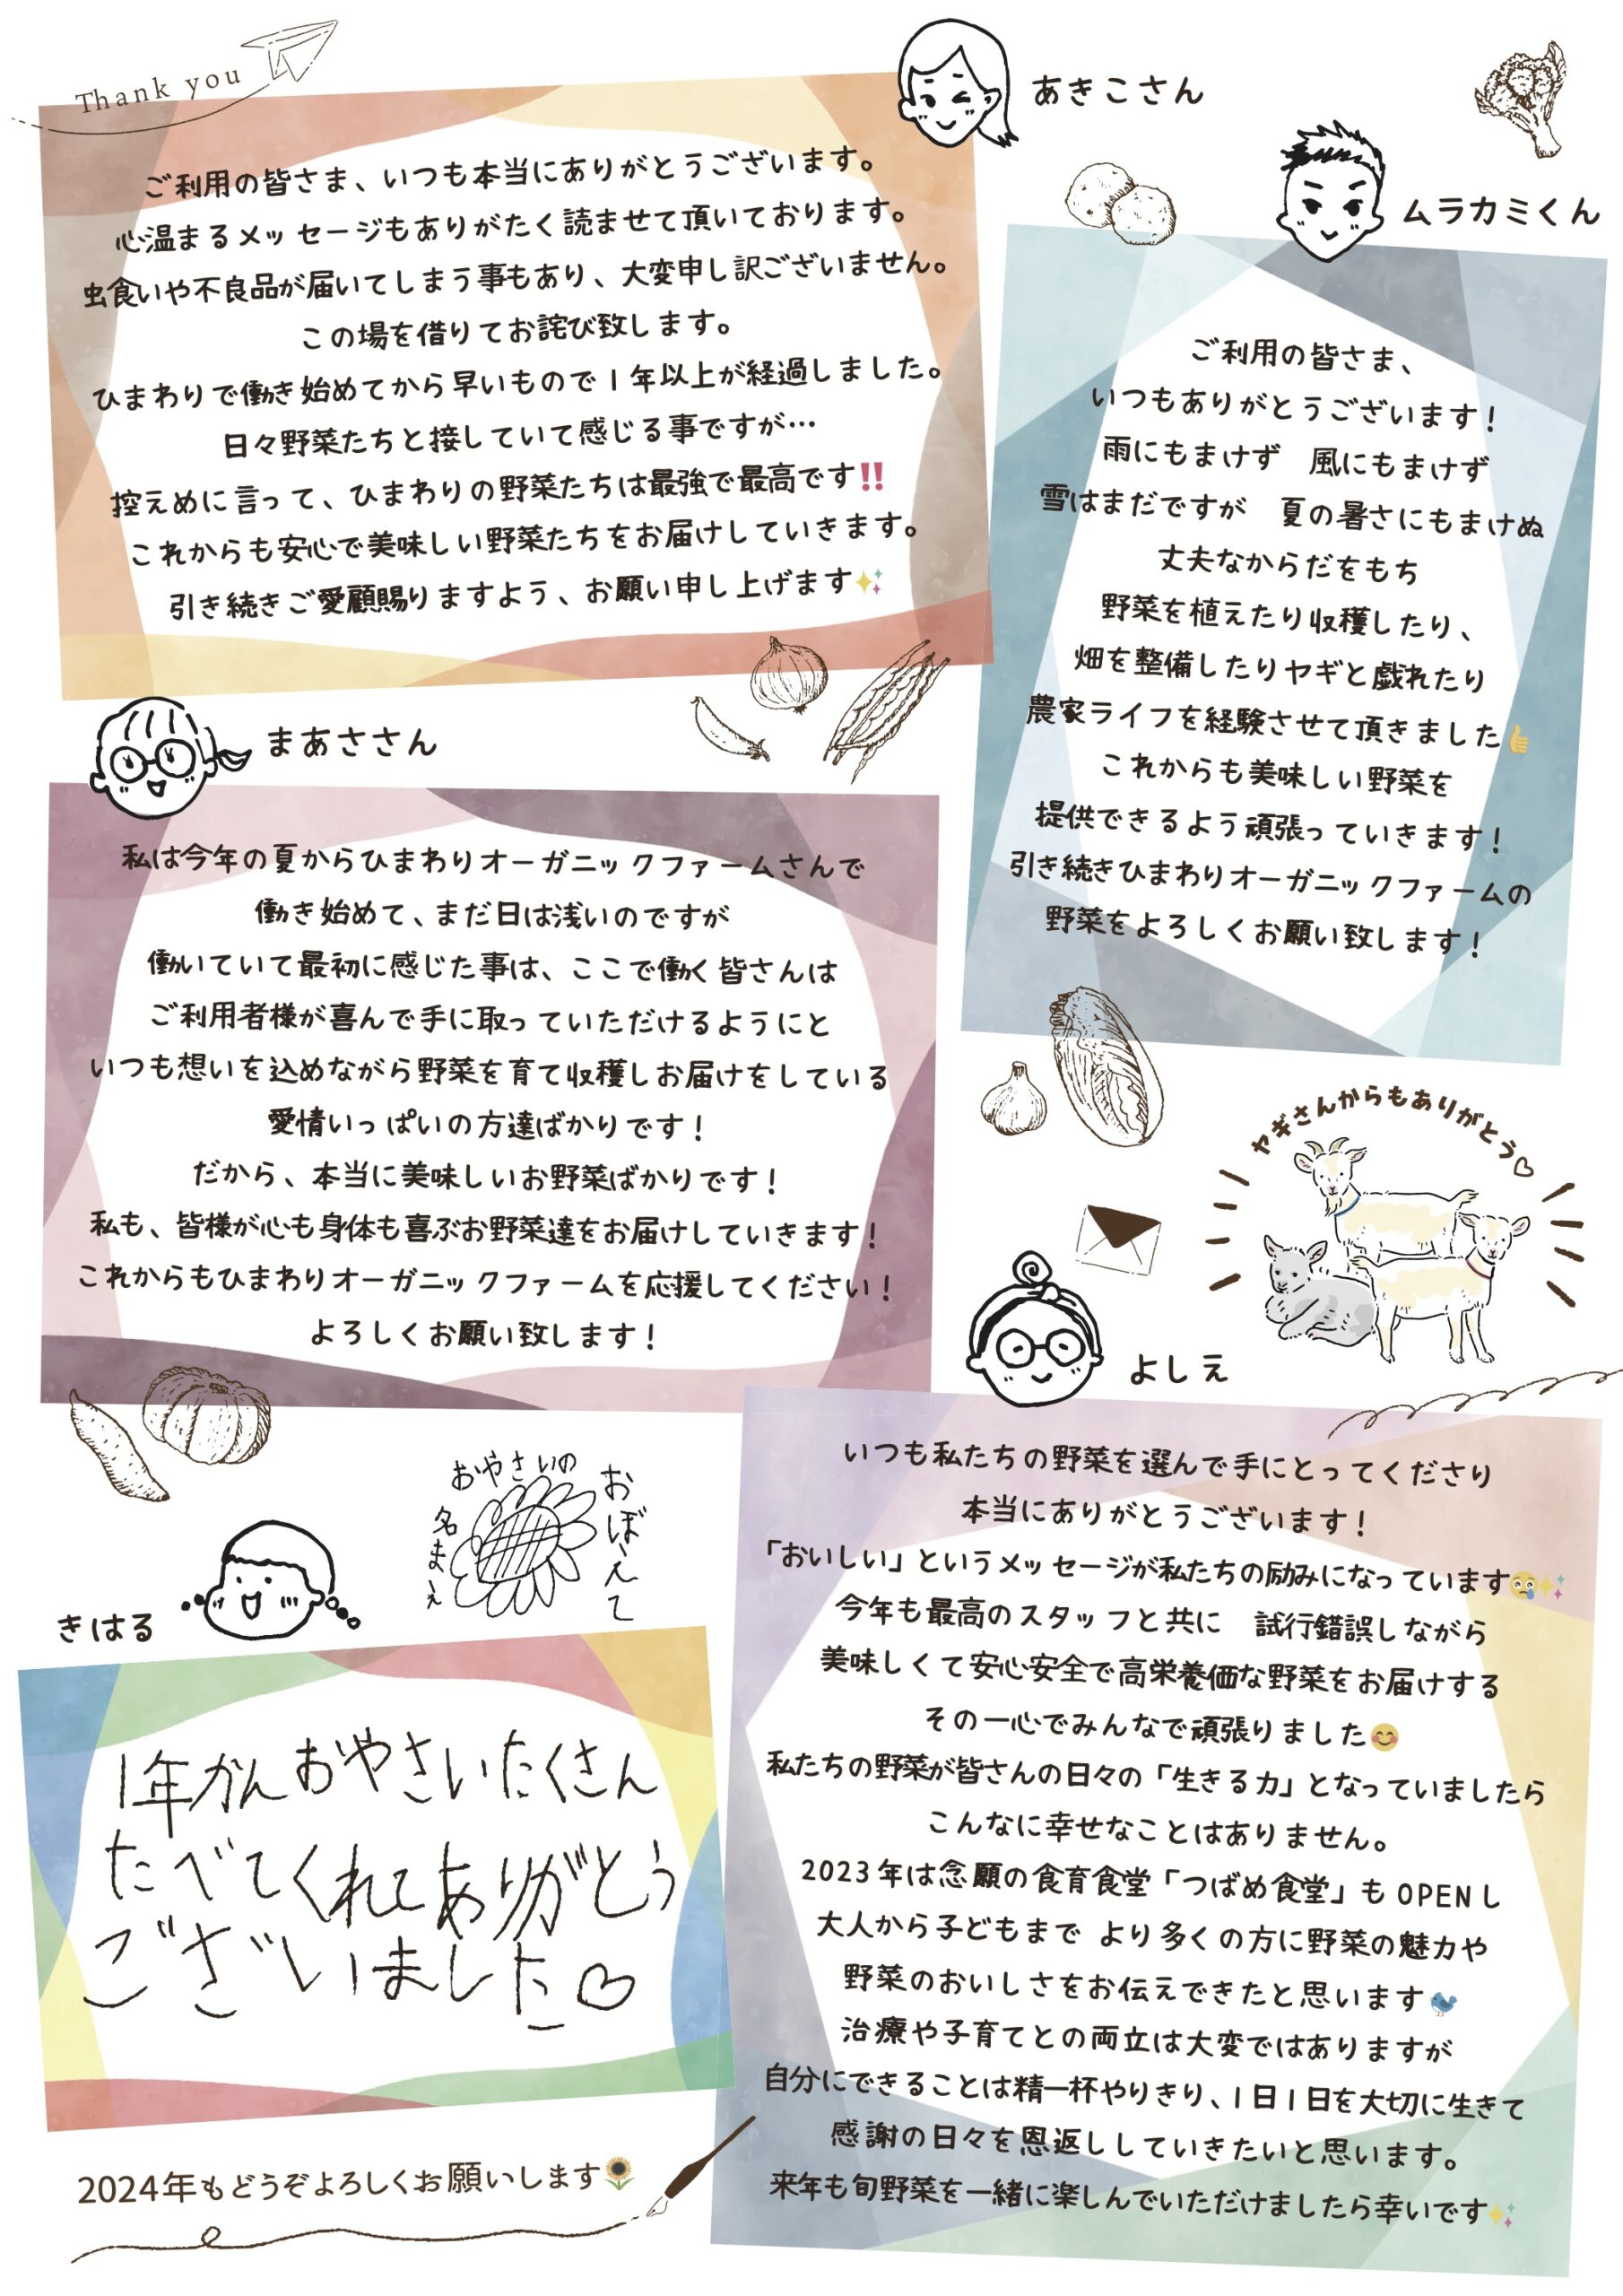 Thank you
あきこさん
ご利用の皆さま、いつも本当にありがとうございます。
心温まるメッセージもありがたく読ませて頂いております。
虫食いや不良品が届いてしまう事もあり、大変申し訳ございません。
この場を借りてお詫び致します。
ひまわりで働き始めてから早いもので1年以上が経過しました。
日々野菜たちと接していて感じる事ですが…
控えめに言って、ひまわりの野菜たちは最強で最高です‼️
これからも安心で美味しい野菜たちをお届けしていきます。
引き続きご愛顧賜りますよう、お願い申し上げます✨
ムラカミくん
ご利用の皆さま、
いつもありがとうございます！
雨にもまけず　風にもまけず
雪はまだですが　夏の暑さにもまけぬ
丈夫なからだをもち
野菜を植えたり収穫したり、
畑を整備したりヤギと戯れたり
農家ライフを経験させて頂きました👍
これからも美味しい野菜を
提供できるよう頑張っていきます！
引き続きひまわりオーガニックファームの
野菜をよろしくお願い致します！
まあささん
私は今年の夏からひまわりオーガニックファームさんで
働き始めて、まだ日は浅いのですが
働いていて最初に感じた事は、ここで働く皆さんは
ご利用者様が喜んで手に取っていただけるようにと
いつも想いを込めながら野菜を育て収穫しお届けをしている
愛情いっぱいの方達ばかりです！
だから、本当に美味しいお野菜ばかりです！
私も、皆様が心も身体も喜ぶお野菜達をお届けしていきます！
これからもひまわりオーガニックファームを応援してください！
よろしくお願い致します！
ヤギさんからもありがとう♡
よしえ
いつも私たちの野菜を選んで手にとってくださり
本当にありがとうございます！
「おいしい」というメッセージが私たちの励みになっています😢✨
今年も最高のスタッフと共に　試行錯誤しながら
美味しくて安心安全で高栄養価な野菜をお届けする
その一心でみんなで頑張りました😊
私たちの野菜が皆さんの日々の「生きる力」となっていましたら
こんなに幸せなことはありません。
2023年は念願の食育食堂「つばめ食堂」もOPENし
大人から子どもまで より多くの方に野菜の魅力や
野菜のおいしさをお伝えできたと思います🐦
治療や子育てとの両立は大変ではありますが
自分にできることは精一杯やりきり、1日1日を大切に生きて
感謝の日々を恩返ししていきたいと思います。
来年も旬野菜を一緒に楽しんでいただけましたら幸いです✨
きはる
おやさいの
名まえ
おぼえて
1年かんおやさいたくさん
たべてくれてありがとう
ございました♡
2024年もどうぞよろしくお願いします🌻